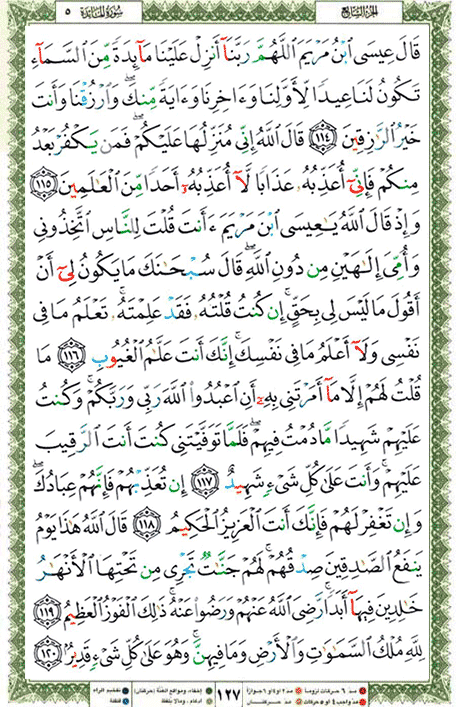 الجزء السابع
سورة المائدة ٥
قَالَ عِيسَى ٱبْنُ مَرْيَمَ ٱللَّهُمَّ رَبَّنَآ أَنزِلْ عَلَيْنَا مَآئِدَةً مِّنَ ٱلسَّمَآءِ
تَكُونُ لَنَا عِيدًا لِّأَوَّلِنَا وَءَاخِرِنَا وَءَايَةً مِّنكَ ۖ وَٱرْزُقْنَا وَأَنتَ
خَيْرُ ٱلرَّٰزِقِينَ ١١٤ قَالَ ٱللَّهُ إِنِّى مُنَزِّلُهَا عَلَيْكُمْ ۖ فَمَن يَكْفُرْ بَعْدُ
مِنكُمْ فَإِنِّىٓ أُعَذِّبُهُۥ عَذَابًا لَّآ أُعَذِّبُهُۥٓ أَحَدًا مِّنَ ٱلْعَٰلَمِينَ ١١٥
وَإِذْ قَالَ ٱللَّهُ يَٰعِيسَى ٱبْنَ مَرْيَمَ ءَأَنتَ قُلْتَ لِلنَّاسِ ٱتَّخِذُونِى
وَأُمِّىَ إِلَٰهَيْنِ مِن دُونِ ٱللَّهِ ۖ قَالَ سُبْحَٰنَكَ مَا يَكُونُ لِىٓ أَنْ
أَقُولَ مَا لَيْسَ لِى بِحَقٍّ ۚ إِن كُنتُ قُلْتُهُۥ فَقَدْ عَلِمْتَهُۥ ۚ تَعْلَمُ مَا فِى
نَفْسِى وَلَآ أَعْلَمُ مَا فِى نَفْسِكَ ۚ إِنَّكَ أَنتَ عَلَّٰمُ ٱلْغُيُوبِ ١١٦ مَا
قُلْتُ لَهُمْ إِلَّا مَآ أَمَرْتَنِى بِهِۦٓ أَنِ ٱعْبُدُوا۟ ٱللَّهَ رَبِّى وَرَبَّكُمْ ۚ وَكُنتُ
عَلَيْهِمْ شَهِيدًا مَّا دُمْتُ فِيهِمْ ۖ فَلَمَّا تَوَفَّيْتَنِى كُنتَ أَنتَ ٱلرَّقِيبَ
عَلَيْهِمْ ۚ وَأَنتَ عَلَىٰ كُلِّ شَىْءٍ شَهِيدٌ ١١٧ إِن تُعَذِّبْهُمْ فَإِنَّهُمْ عِبَادُكَ ۖ
وَإِن تَغْفِرْ لَهُمْ فَإِنَّكَ أَنتَ ٱلْعَزِيزُ ٱلْحَكِيمُ ١١٨ قَالَ ٱللَّهُ هَٰذَا يَوْمُ
يَنفَعُ ٱلصَّٰدِقِينَ صِدْقُهُمْ ۚ لَهُمْ جَنَّٰتٌ تَجْرِى مِن تَحْتِهَا ٱلْأَنْهَٰرُ
خَٰلِدِينَ فِيهَآ أَبَدًا ۚ رَّضِىَ ٱللَّهُ عَنْهُمْ وَرَضُوا۟ عَنْهُ ۚ ذَٰلِكَ ٱلْفَوْزُ ٱلْعَظِيمُ ١١٩
لِلَّهِ مُلْكُ ٱلسَّمَٰوَٰتِ وَٱلْأَرْضِ وَمَا فِيهِنَّ ۚ وَهُوَ عَلَىٰ كُلِّ شَىْءٍ قَدِيرٌۢ ١٢٠
مد ٦ حركات لزوماً مد ٢ او ٤ او ٦ جوازاً
مد واجب ٤ او ٥ حركات مد حركتان
١٢٧
إخفاء، ومواقع الغنة (حركتان) تفخيم الراء
إدغام، وما لا يلفظ قلقلة